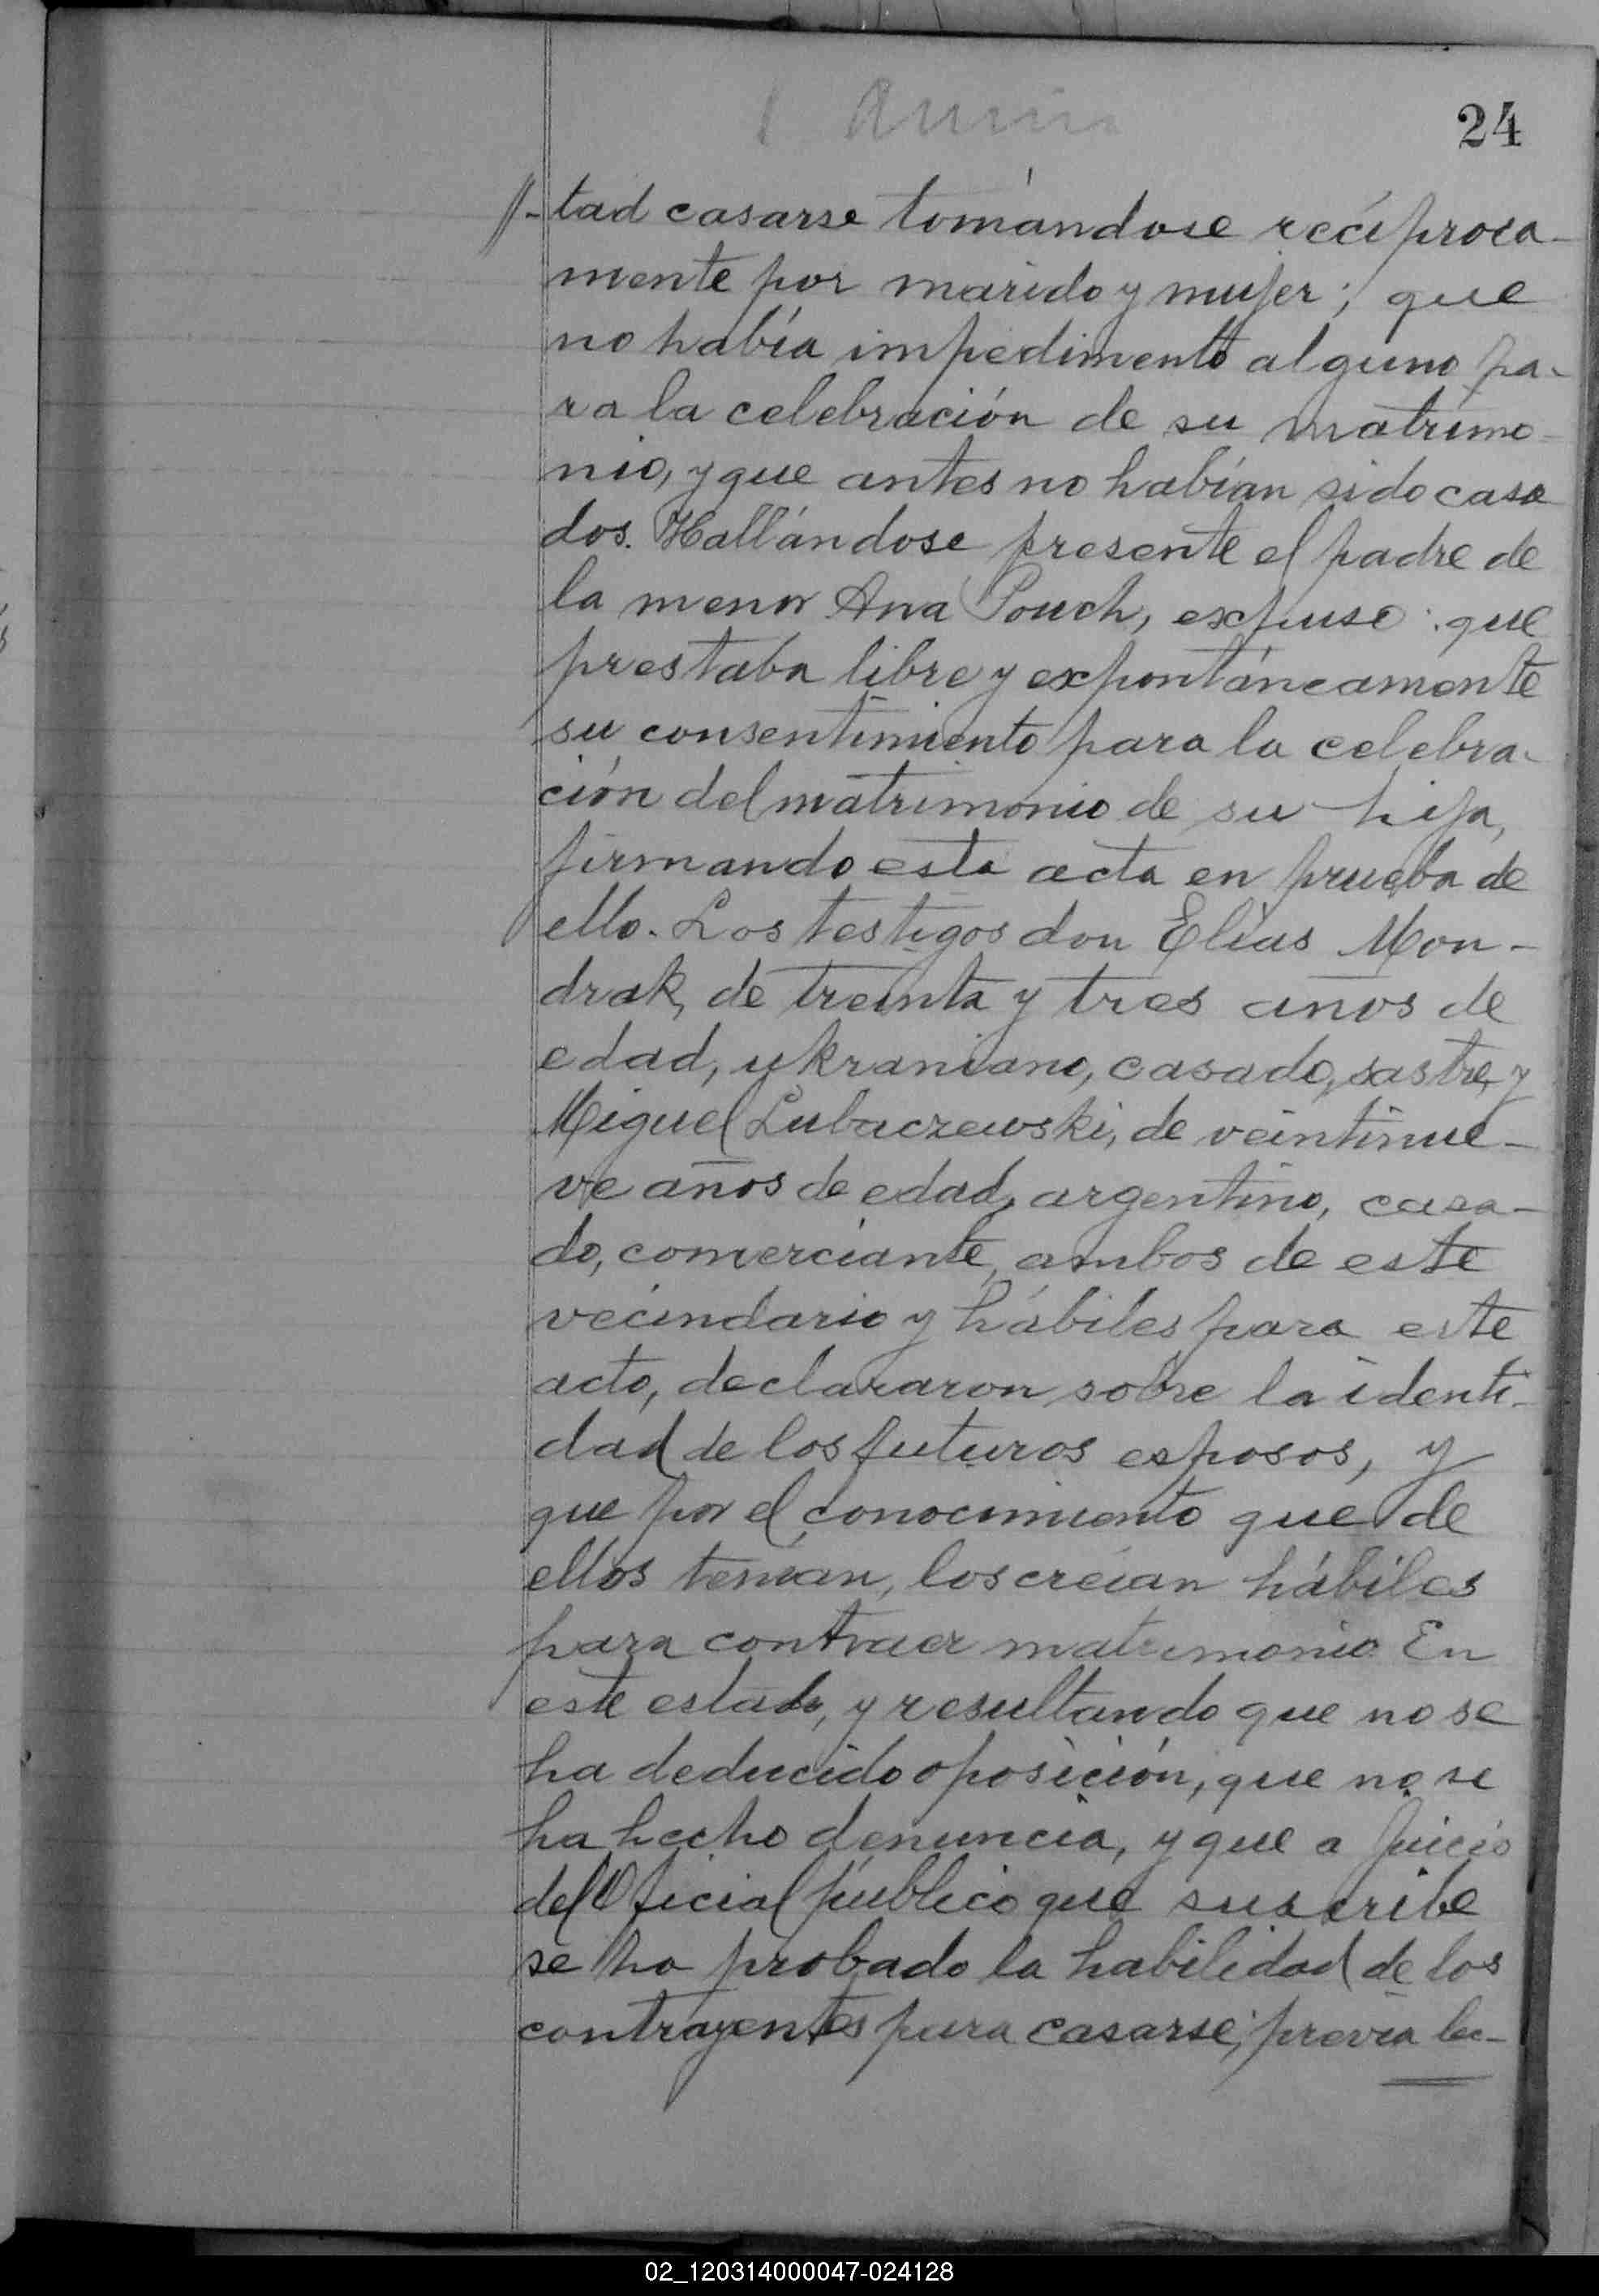 24
//-tad casarse tomándose recíproca-
mente por marido y mujer; que
no había impedimento alguno pa-
ra la celebración de su matrimo-
nio, y que antes no habían sido casa
dos. Hallándose presente el padre de
la menor Ana Pouch, expuso: que
prestaba libre y expontáneamente
su consentimiento para la celebra-
ción del matrimonio de su hija,
firmando esta acta en prueba de
ello. Los testigos don Elías Mon-
drak, de treinta y tres años de
edad, ukraniano, casado, sastre, y
Miguel Lubaczewski, de veintinue-
ve años de edad, argentino, casa-
do, comerciante, ambos de este
vecindario y hábiles para este
acto, declararon sobre la identi-
dad de los futuros esposos, y
que por el conocimiento que de
ellos tenían, los creían hábiles
para contraer matrimonio. En
este estado, y resultando que no se
ha deducido oposición, que no se
ha hecho denuncia, y que a juicio
del Oficial público que suscribe
se ha probado la habilidad de los
contrayentes para casarse; previa lec-
02_120314000047-024128